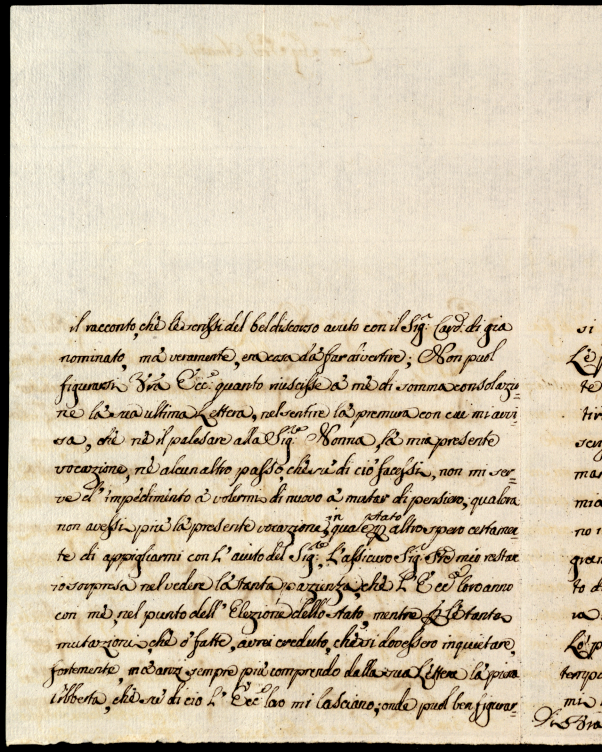 il racconto, che le scrissi del bel discorso avuto con il Sig.r Card. di già
nominato, mà veramente, era cosa dà far divertire; Non puol
figurarsi V͞ra Ecc.a quanto riuscisse à mè di somma consolazio-
ne la sua ultima Lettera, nel sentire la premura con cui mi avvi-
sa, chè nè il palesare alla Sig.ra Nonna, la mia presente
vocazione, nè alcun altro passo, chè sù di ciò facessi, non mi ser-
ve d'impedimento à volermi di nuovo à mutar di pensiero, qualora
non avessi più la presente vocazione, in quale stato altro spero certamen-
te di appigliarmi con L'aiuto del Sig.re, L'assicuro Sig.r P͞re mio restar
io sorpresa nel vedere la tanta pazienza, chè L'Ecc.e loro anno
con mè, nel punto dell'Elezione dello stato, mentre le tante
mutazioni, chè ò fatte, avrei creduto, chè si dovessero inquietare,
fortemente, mà anzi sempre più comprendo dalla sua Lettera la piena
Libertà, chè sù di ciò L'Ecc.e loro mi lasciano; onde puol ben figurar-
si
te
mi